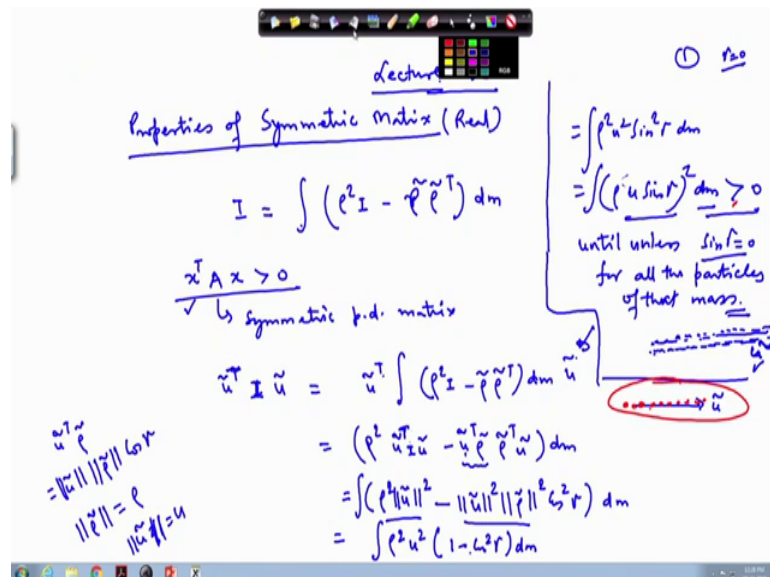 Lecture
Properties of Symmetric Matrix (Real)
I = ∫ (ρ²I - ρ̃ ρ̃ᵀ) dm
xᵀ A x > 0
↳ symmetric p.d. matrix
ũᵀ I ũ = ũᵀ ∫ (ρ²I - ρ̃ ρ̃ᵀ) dm ũ
= (ρ² ũᵀI ũ - ũᵀρ̃ ρ̃ᵀ ũ) dm
= ∫ (ρ² ||ũ||² - ||ũ||² ||ρ̃||² cos²r) dm
= ∫ ρ²u² (1 - cos²r) dm
ũᵀ ρ̃
= ||ũ|| ||ρ̃|| cos r
||ρ̃|| = ρ
||ũ|| = u
① r=0
= ∫ ρ²u² sin²r dm
= ∫ (ρ u sin r)² dm > 0
until unless sin r=0
for all the particles
of that mass.
ũ
ũ
RGB